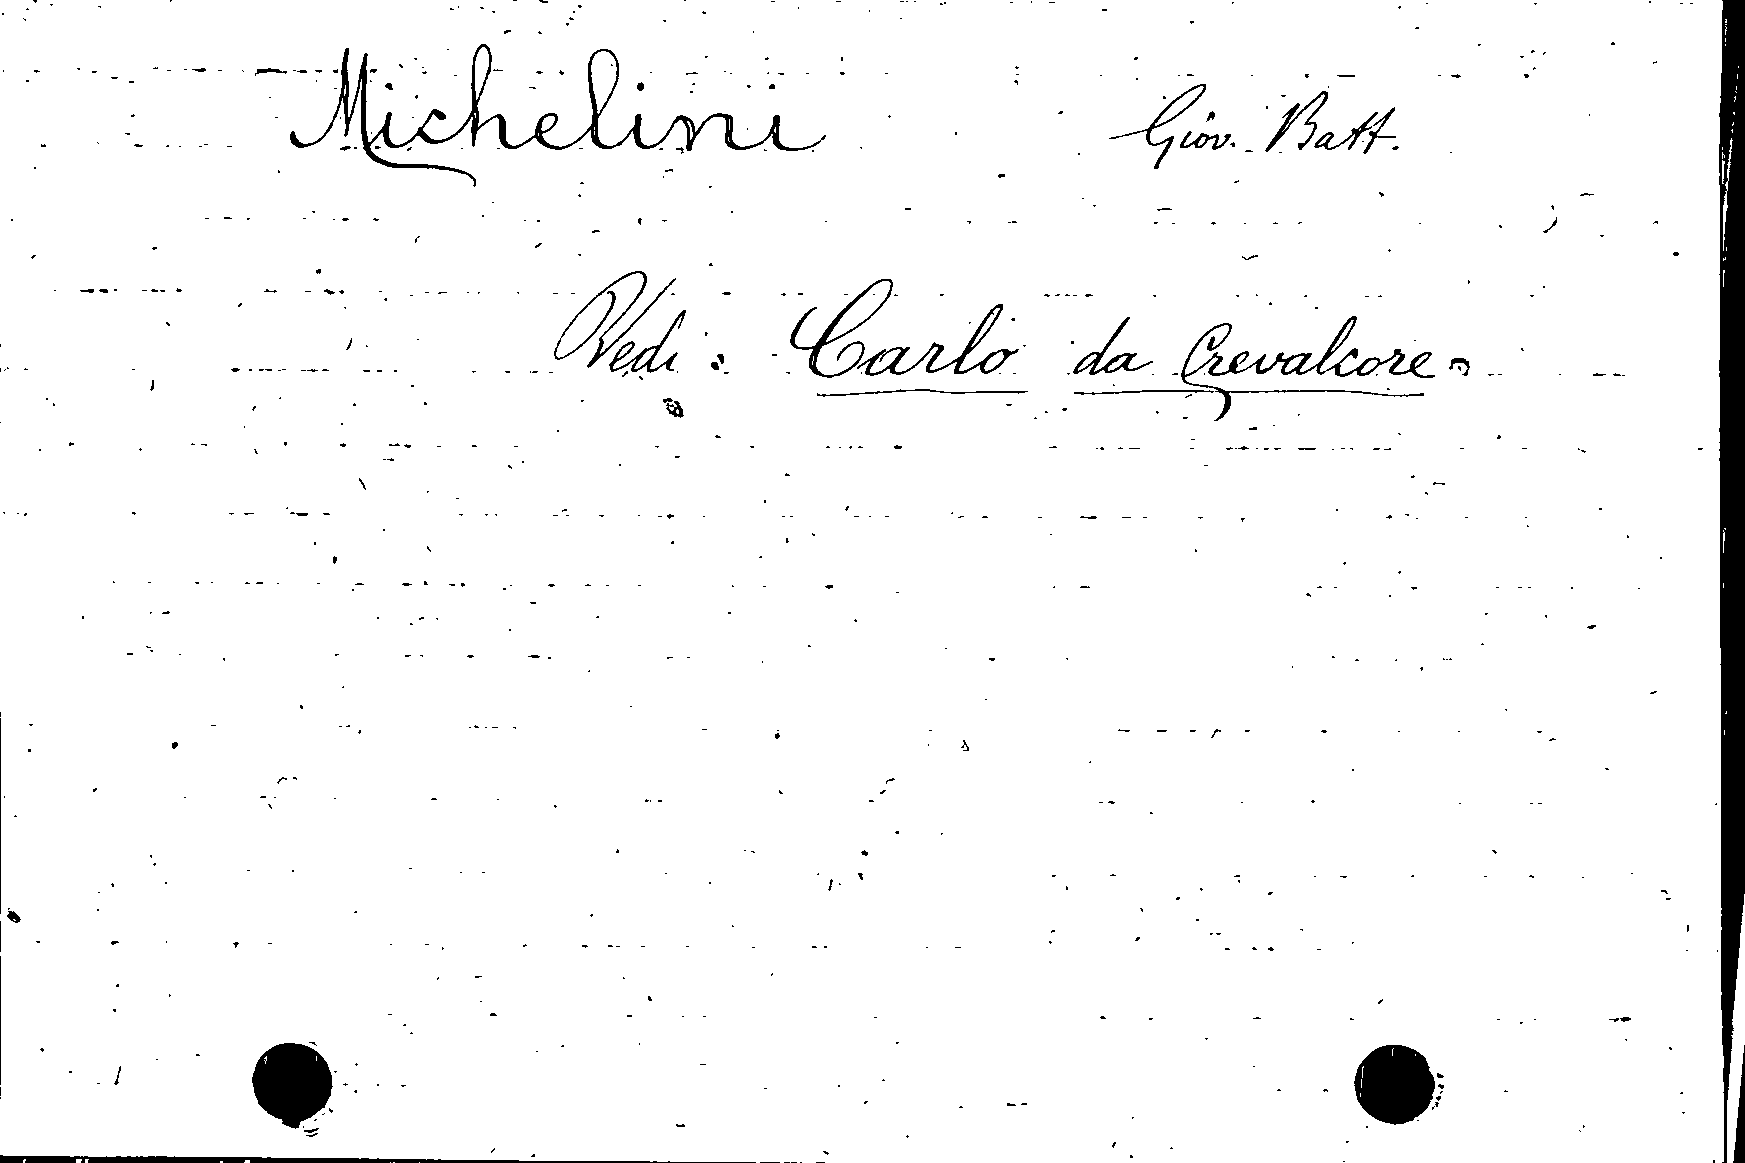 Michelini Giov. Batt.
Vedi: Carlo da Crevalcore.